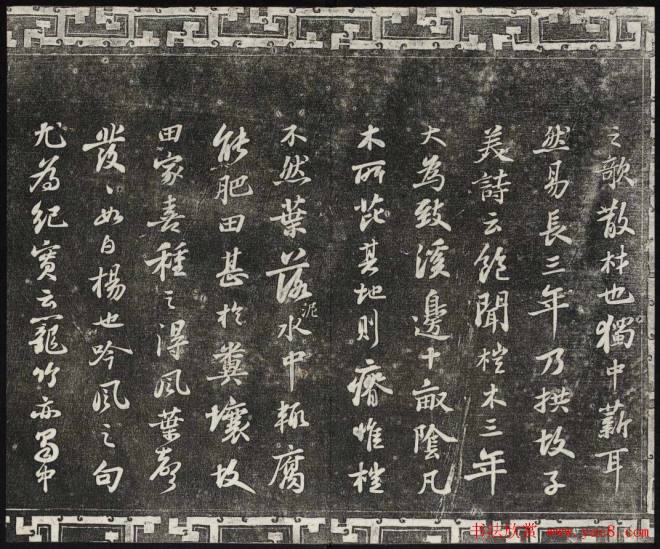 之歌散材也獨中薪耳
然易長三年乃拱故子
美詩云飽聞榿木三年
大為致溪邊十畝陰凡
木所芘其地則瘠惟榿
不然葉落泥水中輒腐
能肥田甚於糞壤故
田家喜種之得風葉聲
發〻如白楊也吟風之句
尤為紀實云籠竹亦蜀中
书法欣赏 www.yac8.com